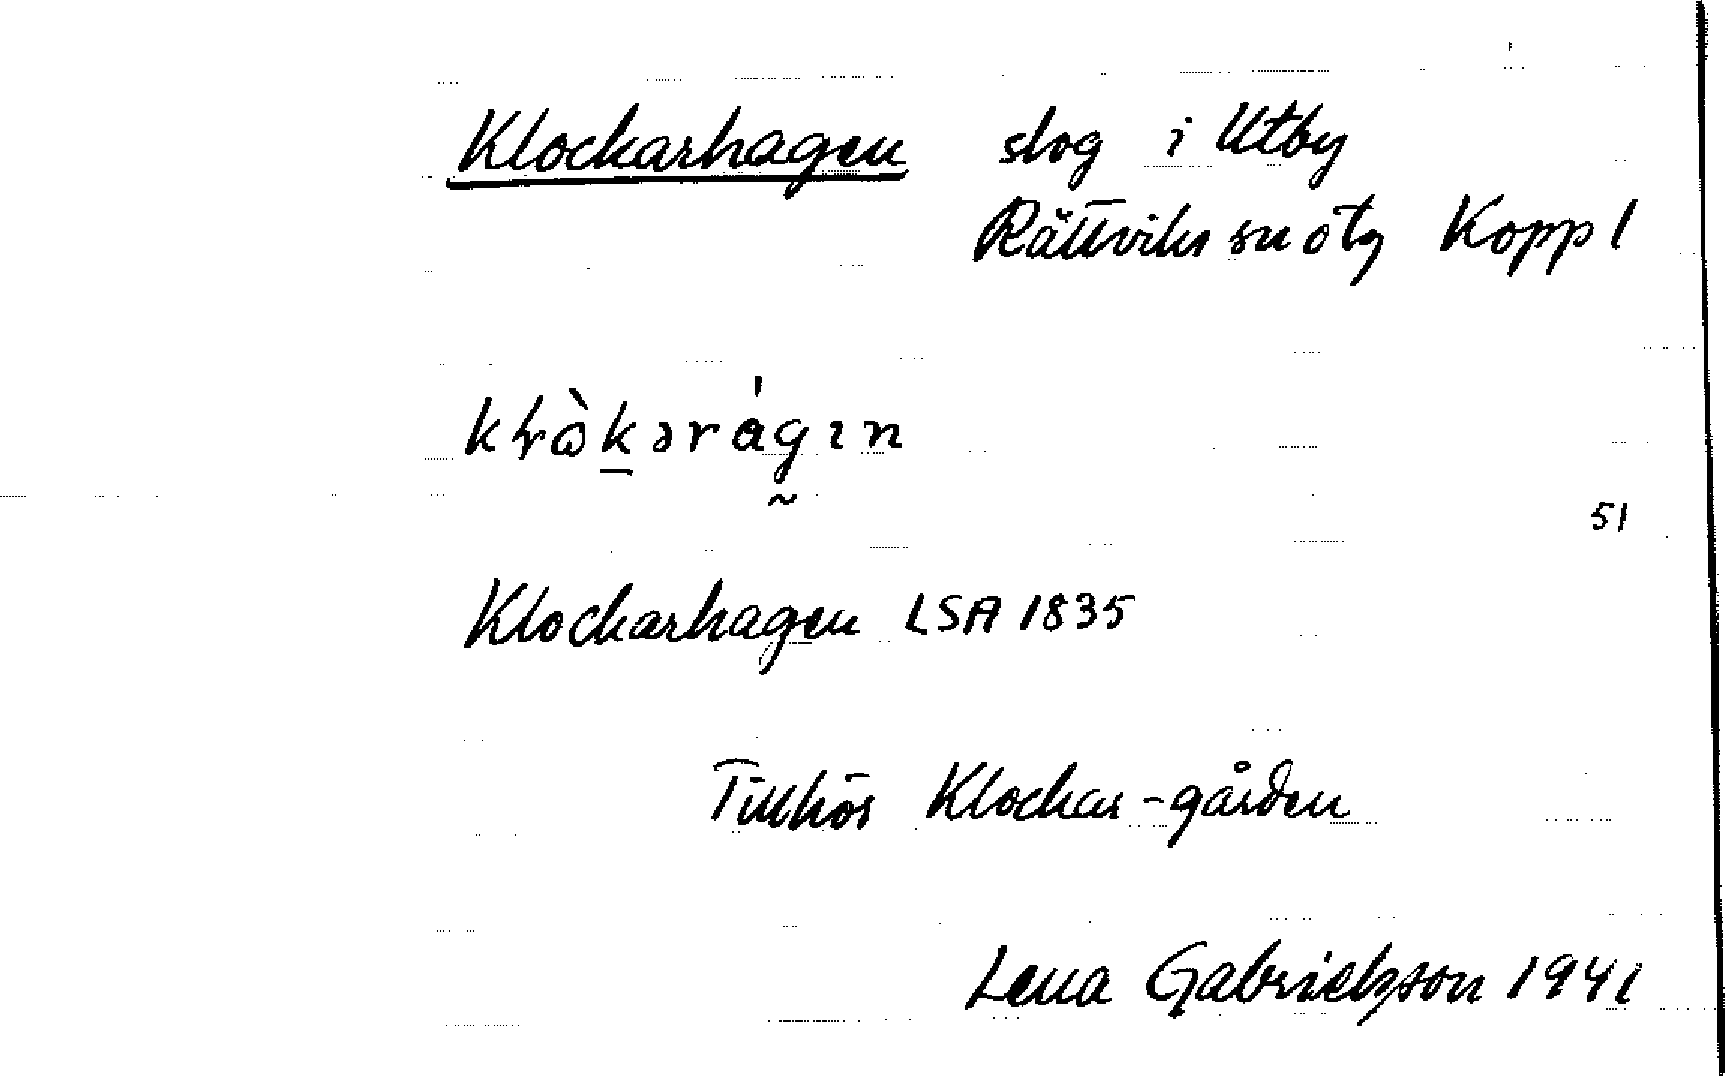 Klockarhagen slog i Utby
Rättviks sn ötg Kopp l
51
Klockarhagen LSA 1835
Tillhör Klockar-gården
Lena Gabrielsson 1941